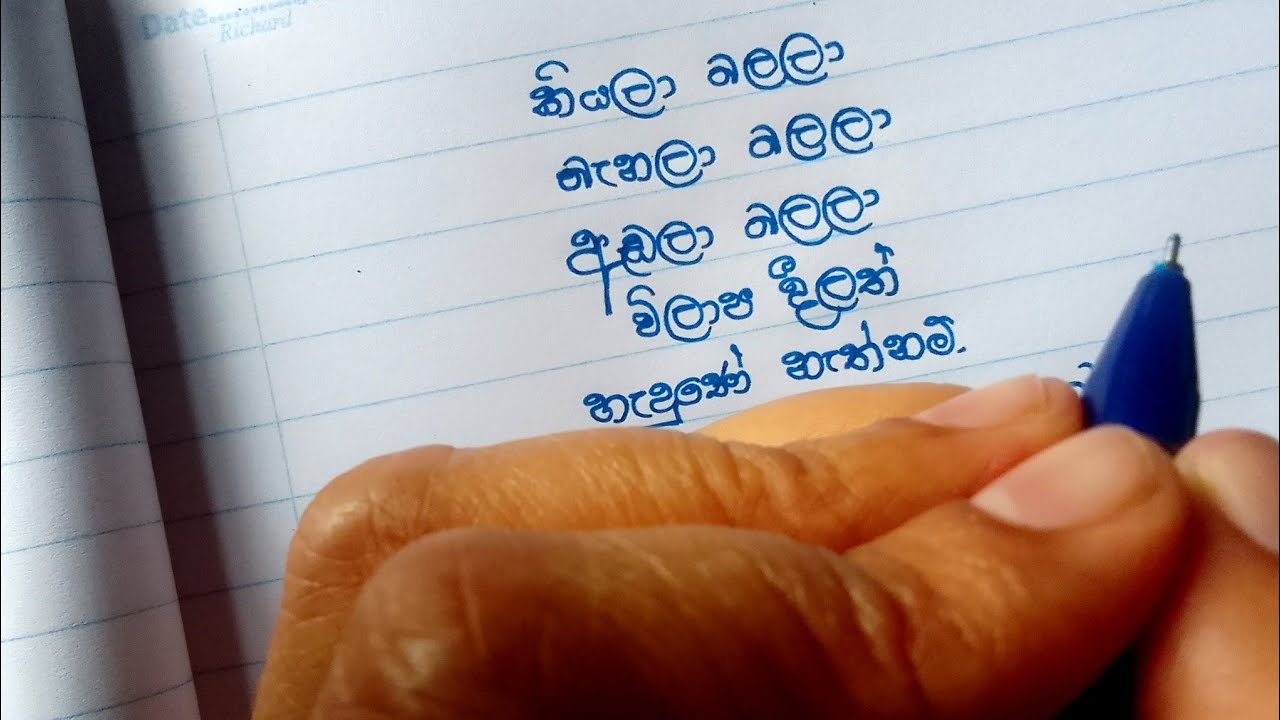 Date..............
Richard
කියලා බලලා
බැනලා බලලා
අඬලා බලලා
විලාප දීලත්
හැදුණේ නැත්නම්.